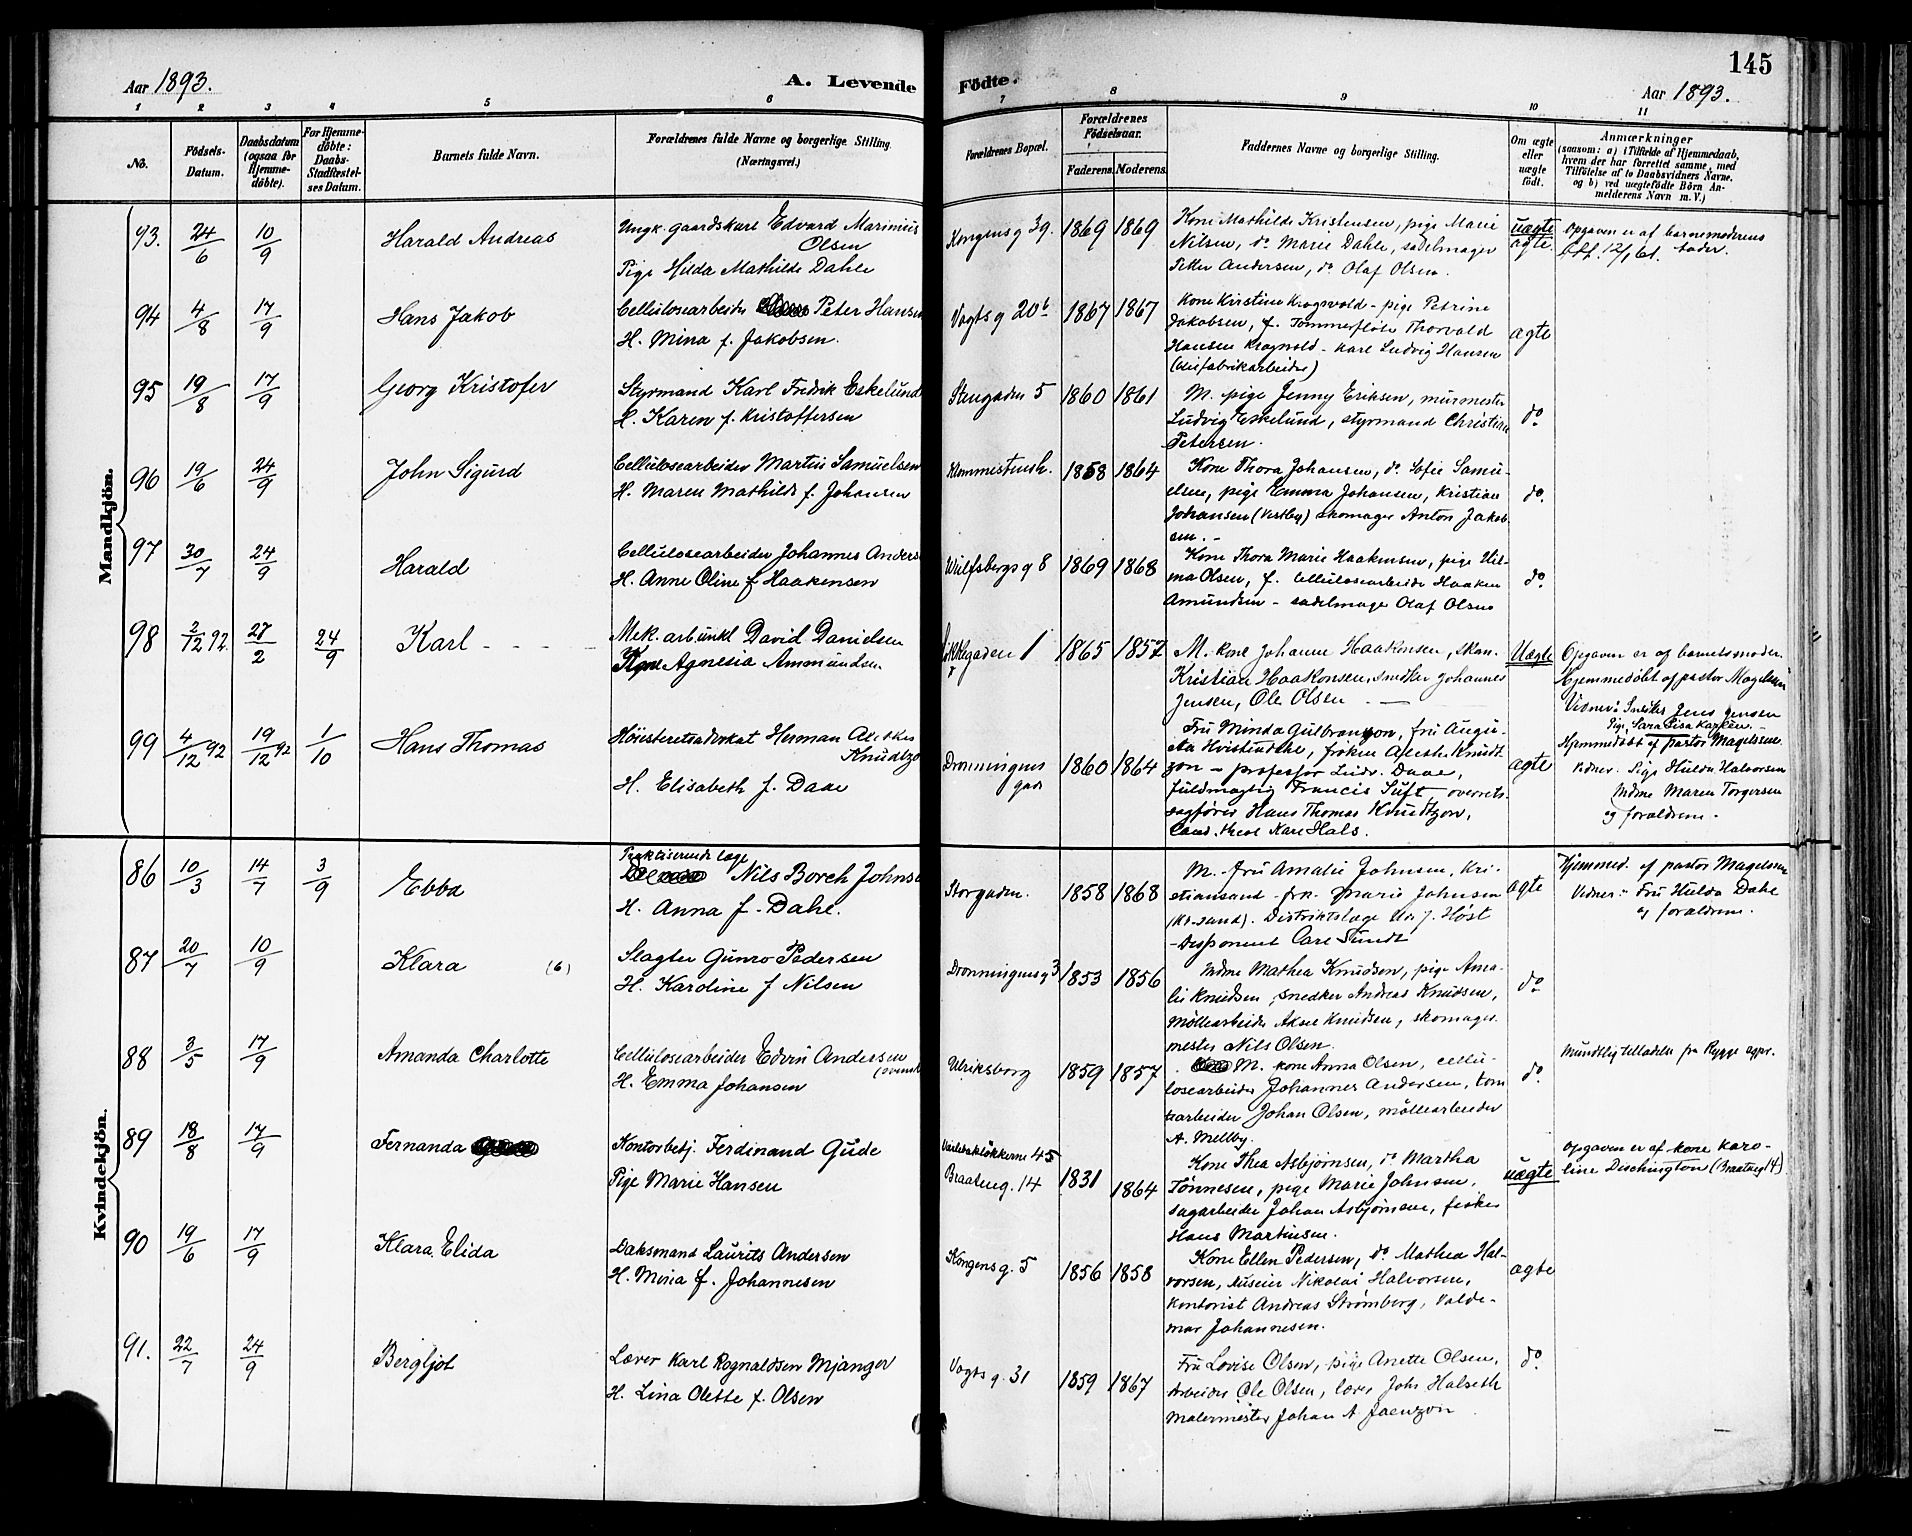 Aar 1893.
A. Levende
1 2 3 4 5 6
No.
Fødsels-
Datum.
Daabsdatum
(ogsaa for
Hjemme-
døbte).
For Hjemme-
døbte:
Daabs-
Stadfæstel-
ses Datum.
Barnets fulde Navn.
Forældrenes fulde Navne og borgerlige Stilling
(Næringsvei.)
Mandkjøn.
93. 24/6 10/9 Harald Andreas
Ungk. gaardskarl Edvard Marinius
Olsen
Pige Hilda Mathilde Dahle
94 4/8 17/9 Hans Jakob
Cellulosearbeider Peter Hansen
H. Mina f. Jakobsen.
95 19/8 17/9 Georg Kristofer
Styrmand Karl Fredrik Eskelund
H. Karen f. Kristoffersen
96 19/6 24/9 John Sigurd
Cellulosearbeider Martin Samuelsen
H. Maren Mathilde f. Johansen
97 30/7 24/9 Harald
Cellulosearbeider Johannes Anders
H. Anne Oline f Haakensen
98 2/12 92. 27/2 24/9 Karl
Mek. arb. unkl David Danielsen
Agnesia Ammundsen
99 4/12 92 19/12 92 1/10 Hans Thomas
Høiesteretsadvokat Herman
Knudtzo
H. Elisabeth f. Daae
Kvindekjön.
86 10/3 14/7 3/9 Ebba
Praktiserende læge
Nils Borch Johnse
H. Anna f. Dahl.
87 20/7 10/9 Klara (6)
Slagter Gunro Pedersen
H. Karoline f Nilsen
88 3/5 17/9 Amanda Charlotte
Cellulosearbeider Edvin Andersen
(svensk
H. Emma Johansen
89 18/8 17/9 Fernanda
Kontorbetj. Ferdinand Gude
Pige Marie Hansen
90 19/6 17/9 Klara Elida
Daksmand Laurits Andersen
H. Mina f. Johannesen
91. 22/7 24/9 Bergljot
Lærer Karl Rognaldsen Mjanger
H. Lina Olette f. Olsen
145
Fødte.
Aar 1893.
7 8 9 10 11
Forældrenes Bopæl.
Forældrenes
Fødselsaar.
Faderens. Moderens.
Faddernes Navne og borgerlige Stilling.
Om ægte
eller
uægte
født.
Anmærkninger
(saasom: a) i Tilfælde af Hjemmedaab,
hvem der har forrettet samme, med
Tilføielse af to Daabsvidners Navne.
og b) ved uægtefødte Børn An-
melderens Navn m. V.)
Kongens g 39. 1869 1869
Kone Mathilde Kristensen, pige Marie
Nilsen, do Marie Dahle, sadelmager
Petter Andersen, do Olaf Olsen.
uægte
ægte
Opgaven er af barnemoderens
Att. 12/1 61. fader.
Vogts g 20b 1867 1867
Kone Kirstine Kragsvold - pige Petrine
Jakobsen, f. Tømmerfløter Thorvald
Hansen Kragsvold - Karl Ludvig Hansen
ægte
Stengaden 5 1860 1861
M. pige Jenny Eriksen, murmester
Ludvig Eskelund, styrmand Christian
Petersen.
do.
1858 1864
Kone Thora Johansen, do. Sofie Samu-
elsen, pige Emma Johansen, Kristian
Johansen (Vestby) skomager Anton Jakob-
sen. -
do.
Wulfsbergs g 8 1869 1868
Kone Thora Marie Haakensen, pige Hil-
ma Olsen, f. Cellulosearbeider Haaken
Amundsen - sadelmager Olaf Olsen
do.
Løkkegaden 1 1865 1857
M. kone Johanne Haakonsen,
Kristian Haakonsen, snedker Johannes
Jensen, Ole Olsen
Uægte
Opgaven er af barnets moder.
Hjemmedøbt af pastor Magelssen
Vidner: Jens Jensen
Pige
Dronningens
gade
1860 1864
Fru Minda Gulbranson, fru Augu-
sta, frøken Knudt-
zon - professor Ludv. Daae,
fuldmægtig Francis, overrets-
sagfører Hans Thomas Knudtzon,
Cand. theol Karl Hals.
ægte
Hjemmedøbt af pastor Magelssen.
Vidner. Pige Hulda Halvorsen
Mdme Maren Torgersen
og forældrene.
Storgaden. 1858 1868
M. fru Amalie Johnsen, Kri-
stiansand - frk. Marie Johnsen
(Kr-sand). Distriktslæge Høst
- Disponent Carl Sundt
ægte
Hjemmed. af pastor Magelssen
Vidner: Fru Hulda Dahl
og forældrene.
Dronningens g 3 1853 1856
Mdme Mathea Knudsen, pige Ama-
lie Knudsen, snedker Andreas Knudsen,
Møllearbeider Aksel Knudsen, skomager-
mester Nils Olsen.
do
Ulriksborg 1859 1857
M. kone Anna Olsen, cellu-
losearbeider Johannes Andersen, tom-
tearbeider Johan Olsen, møllearbeider
A. Mellby.
do.
Mundtlig tilladelse fra Rygge sgpr.
45
Braateng. 14 1831 1864
Kone Thea Asbjørnsen, do Martha
Tønnesen, pige Marie Johnsen,
sagarbeider Johan Asbjørnsen, fisker
Hans Martinsen.
uægte
Opgaven er af kone Karo-
line Dischington (Braateng 14)
Kongens g. 5 1856 1858
Kone Ellen Pedersen, do. Mathea Hal-
vorsen, Nikolai Halvorsen,
Kontorist Andreas Strømberg, Valde-
mar Johannesen.
ægte
Vogts g. 31 1859 1867
Fru Lovise Olsen, pige Anette Olsen,
Arbeider Ole Olsen, lærer Johs Halseth
Malermester Johan A. Jaenzon
do